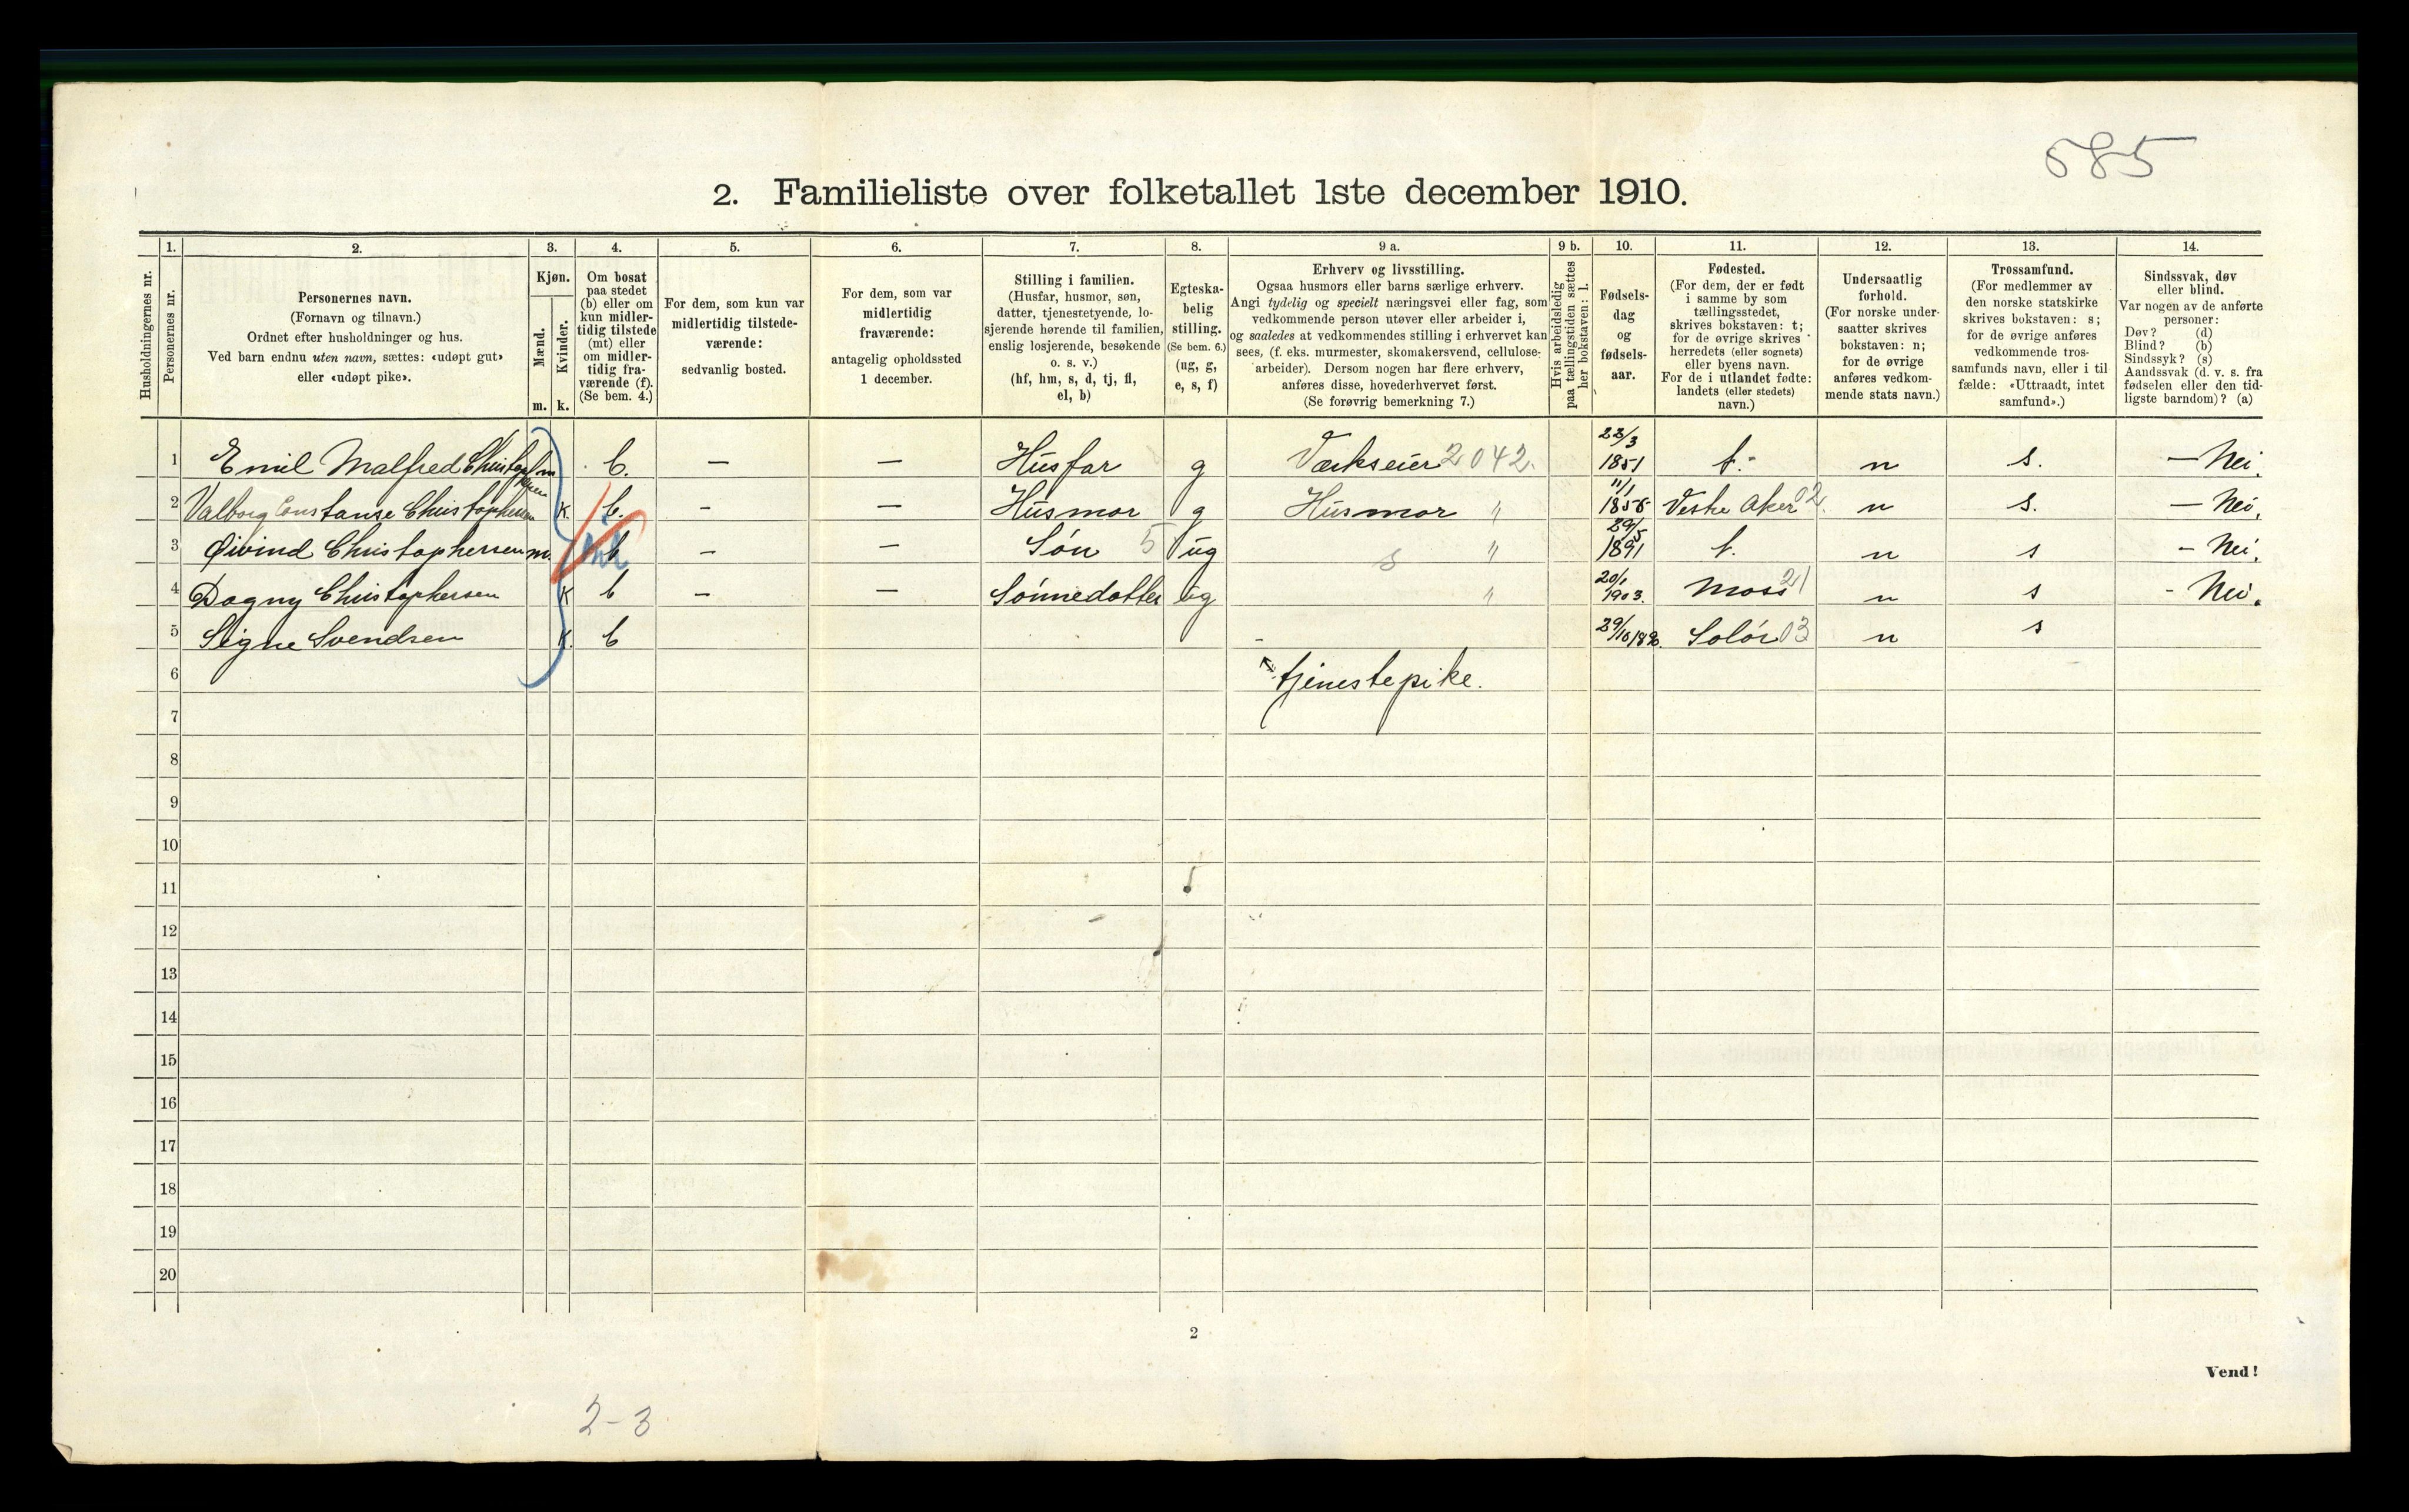 585
2. Familieliste over folketallet 1ste december 1910.
Husholdningernes nr.
1.
Personernes nr.
2.
Personernes navn.
(Fornavn og tilnavn.)
Ordnet efter husholdninger og hus.
Ved barn endnu uten navn, sættes: «udøpt gut»
eller «udøpt pike».
3.
Kjøn.
Mænd.
Kvinder.
m. k.
4.
Om bosat
paa stedet
(b) eller om
kun midler-
tidig tilstede
(mt) eller
om midler-
tidig fra-
værende (f).
(Se bem. 4.)
5.
For dem, som kun var
midlertidig tilstede-
værende:
sedvanlig bosted.
6.
For dem, som var
midlertidig
fraværende:
antagelig opholdssted
1 december.
7.
Stilling i familien.
(Husfar, husmor, søn,
datter, tjenestetyende, lo-
sjerende hørende til familien,
enslig losjerende, besøkende
o. s. v.)
(hf, hm, s, d, tj, fl,
el, b)
8.
Egteska-
belig
stilling.
(Se bem. 6.)
(ug, g,
e, s, f)
9 a.
Erhverv og livsstilling.
Ogsaa husmors eller barns særlige erhverv.
Angi tydelig og specielt næringsvei eller fag, som
vedkommende person utøver eller arbeider i,
og saaledes at vedkommendes stilling i erhvervet kan
sees, (f. eks. murmester, skomakersvend, cellulose-
arbeider). Dersom nogen har flere erhverv,
anføres disse, hovederhvervet først.
(Se forøvrig bemerkning 7.)
9 b.
Hvis arbeidsledig
paa tællingstiden sættes
her bokstaven: l.
10.
Fødsels-
dag
og
fødsels-
aar.
11.
Fødested.
(For dem, der er født
i samme by som
tællingsstedet,
skrives bokstaven: t;
for de øvrige skrives
herredets (eller sognets)
eller byens navn.
For de i utlandet fødte:
landets (eller stedets)
navn.)
12.
Undersaatlig
forhold.
(For norske under-
saatter skrives
bokstaven: n;
for de øvrige
anføres vedkom-
mende stats navn.)
13.
Trossamfund.
(For medlemmer av
den norske statskirke
skrives bokstaven: s;
for de øvrige anføres
vedkommende tros-
samfunds navn, eller i til-
fælde: «Uttraadt, intet
samfund».)
14.
Sindssvak, døv
eller blind.
Var nogen av de anførte
personer:
Døv? (d)
Blind? (b)
Sindssyk? (s)
Aandssvak (d. v. s. fra
fødselen eller den tid-
ligste barndom)? (a)
1 Emil Malfred Christophersen m b. — — Husfar g Værkseier 2042. 23/3 1851 t. n s. — Nei.
2 Valborg Constanse Christophersen k. b. - — Husmor g Husmor " 11/1 1856 Vestre Aker 02. n s. — Nei,
3 Øivind Christophersen m. b - — Søn 5 ug s " 29/5 1891 t. n s - Nei,
4 Dagny Christophersen k b - — Sønnedatter ug " 20/1 1903. Moss 21 n s - Nei.
5 Signe Svendsen k. b - Solør 03 n s
6 tjenestepike.
7
8
9
10
11
12
13
14
15
16
17
18
19
20
2
Vend!
2-3